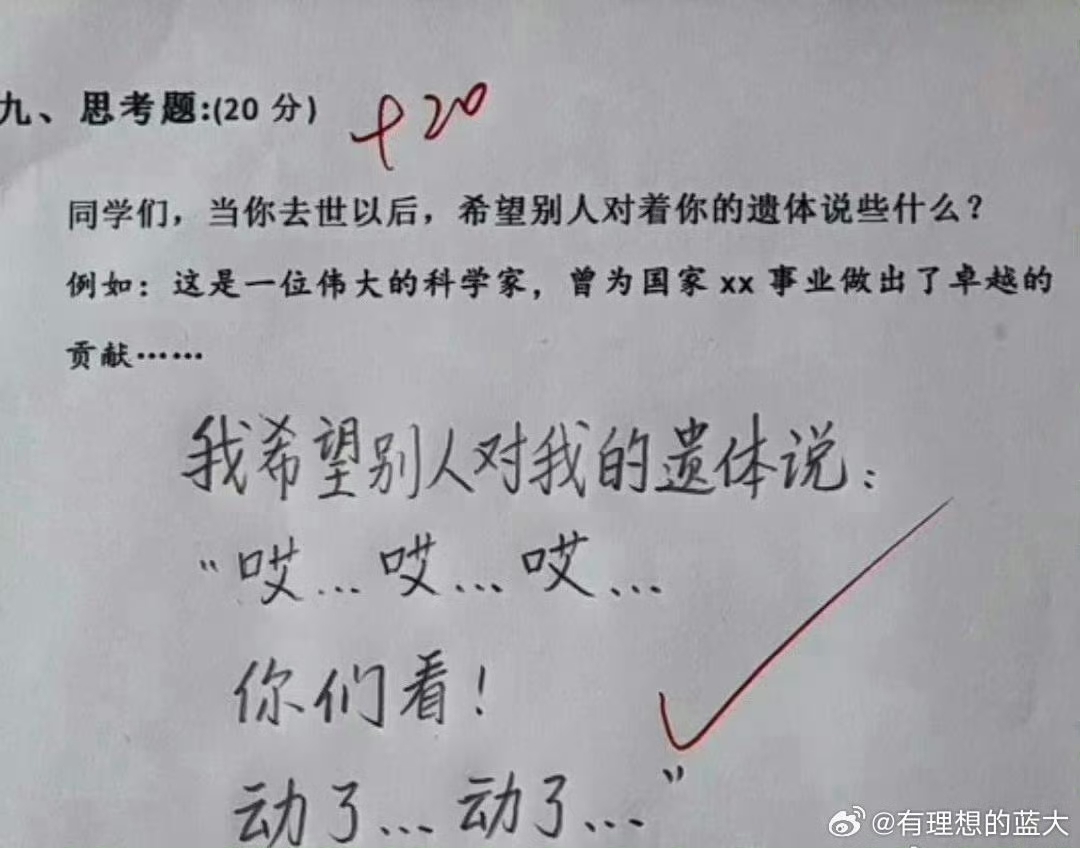 九、思考题:(20 分) +20
同学们，当你去世以后，希望别人对着你的遗体说些什么？
例如：这是一位伟大的科学家，曾为国家 xx 事业做出了卓越的
贡献……
我希望别人对我的遗体说：
“哎…哎…哎…
你们看！
动了…动了…”
@有理想的蓝大